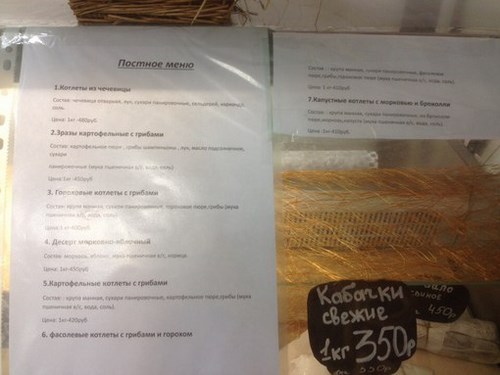 Постное меню
1.Котлеты из чечевицы
Состав: чечевица отварная, лук, сухари панировочные, кориандр,
соль.
Цена: 1кг-480руб.
2.Зразы картофельные с грибами
Состав: картофельное пюре, грибы шампиньоны, лук, масло подсолнечное,
сухари
панировочные (мука пшеничная в/с, вода, соль)
Цена:1кг-450руб.
3. Гороховые котлеты с грибами
Состав: крупа манная, сухари панировочные, гороховое пюре, грибы (мука
пшеничная в/с, вода, соль)
4. Десерт морковно-яблочный
Состав: морковь, яблоко, мука пшеничная в/с, корица
Цена: 1кг-450руб.
5.Картофельные котлеты с грибами
Состав: крупа манная, сухари панировочные, картофельное пюре,грибы (мука
пшеничная в/с, вода, соль).
Цена: 1кг-420руб.
6. фасолевые котлеты с грибами и горохом
Состав: крупа манная, сухари панировочные, фасолевое
пюре,грибы,гороховое пюре (мука пшеничная в/с, вода, соль).
7.Капустные котлеты с морковью и брокколи
Состав: крупа манная, сухари панировочные,
Кабачки
свежие
1кг 350р
450р